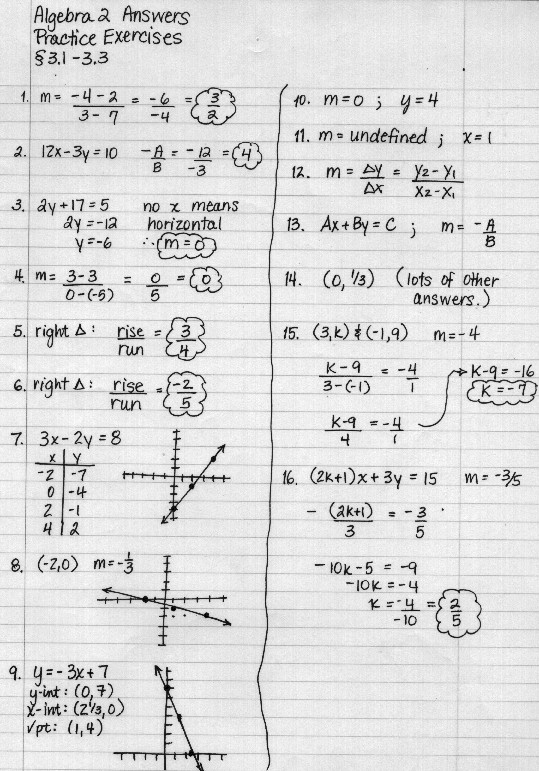 Algebra 2 Answers
Practice Exercises
§ 3.1 - 3.3
1. m = (-4 - 2)/(3 - 7) = -6/-4 = 3/2
2. 12x - 3y = 10   -A/B = -12/-3 = 4
3. 2y + 17 = 5   no x means
2y = -12   horizontal
y = -6   ∴ m = 0
4. m = (3 - 3)/(0 - (-5)) = 0/5 = 0
5. right Δ: rise/run = 3/4
6. right Δ: rise/run = -2/5
7. 3x - 2y = 8
x | y
-2 | -7
0 | -4
2 | -1
4 | 2
8. (-2,0)   m = -1/3
9. y = -3x + 7
y-int: (0,7)
x-int: (2 1/3, 0)
√pt: (1,4)
10. m = 0 ; y = 4
11. m = undefined ; x = 1
12. m = Δy/Δx = (y₂ - y₁)/(x₂ - x₁)
13. Ax + By = C ; m = -A/B
14. (0, 1/3) (lots of other
answers.)
15. (3,k) & (-1,9)   m = -4
(k - 9)/(3 - (-1)) = -4/1
(k - 9)/4 = -4/1
k - 9 = -16
k = -7
16. (2k+1)x + 3y = 15   m = -3/5
-(2k+1)/3 = -3/5
-10k - 5 = -9
-10k = -4
k = -4/-10 = 2/5